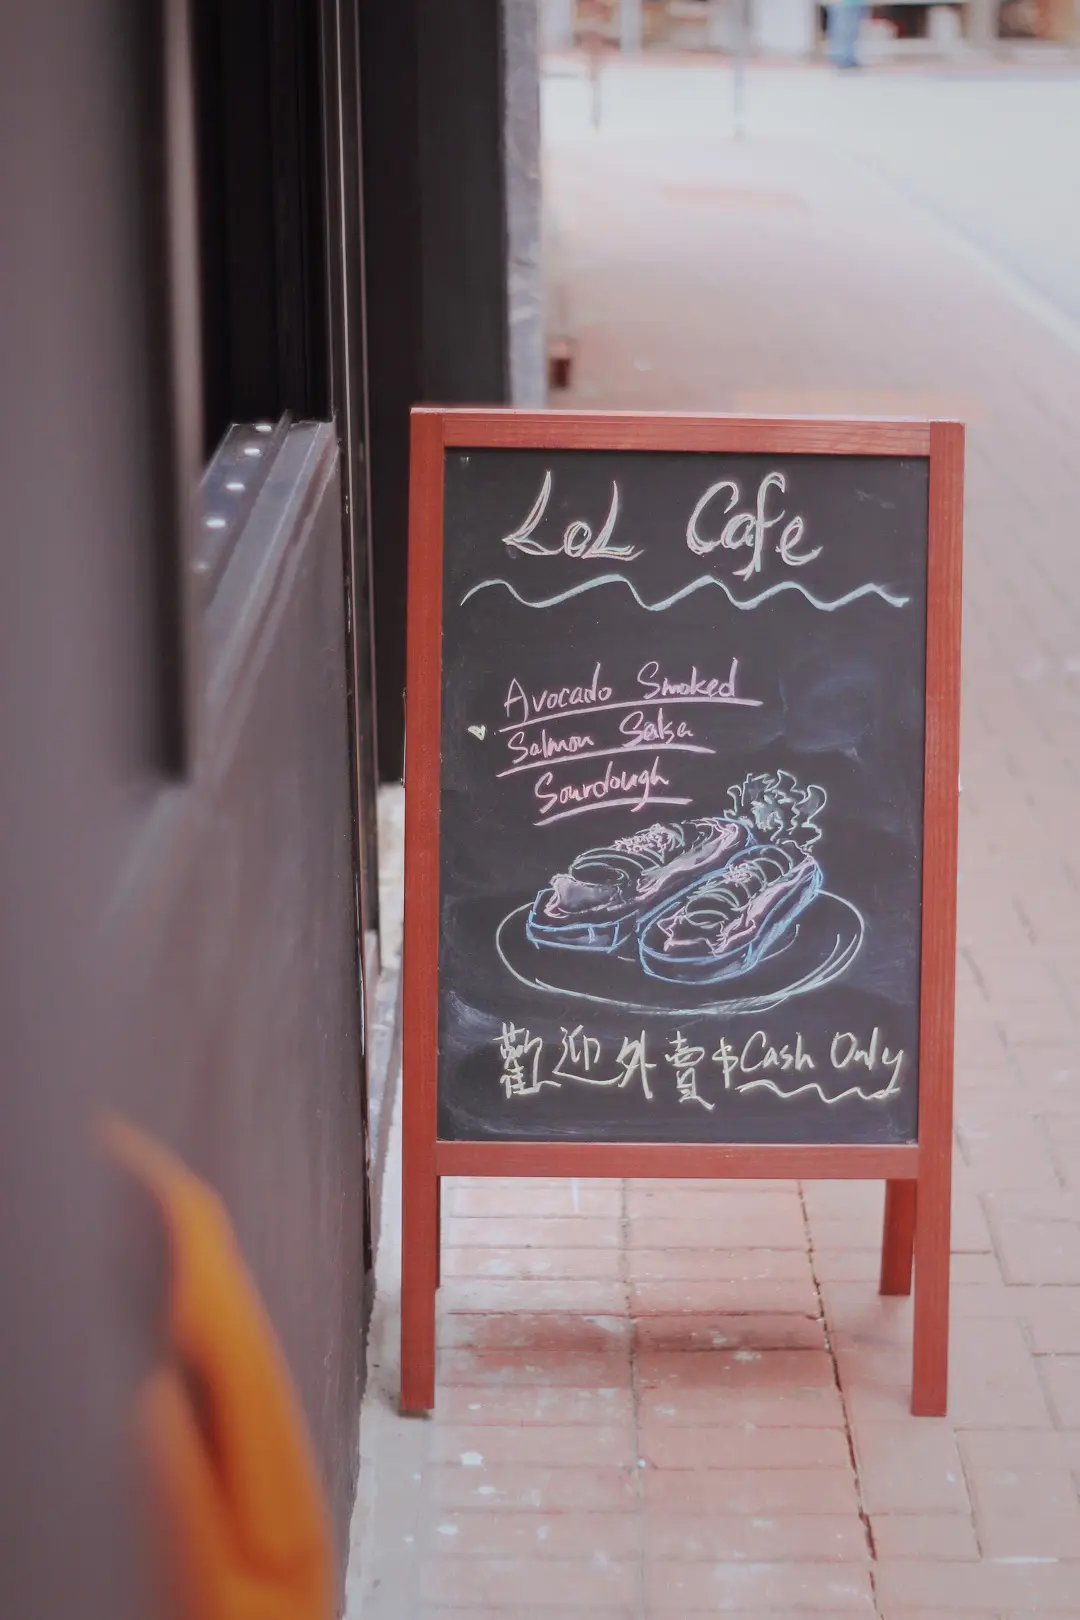 LoL Cafe
Avocado Smoked
Salmon Salsa
Sourdough
歡迎外賣 $Cash Only